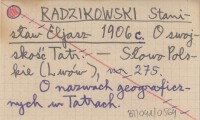 RADZIKOWSKI Stani-
sław Eljasz 1906 c. O swoj-
skość Tatr. — Słowo Pols-
kie (Lwów), nr 275.
O nazwach geograficz-
nych w Tatrach.